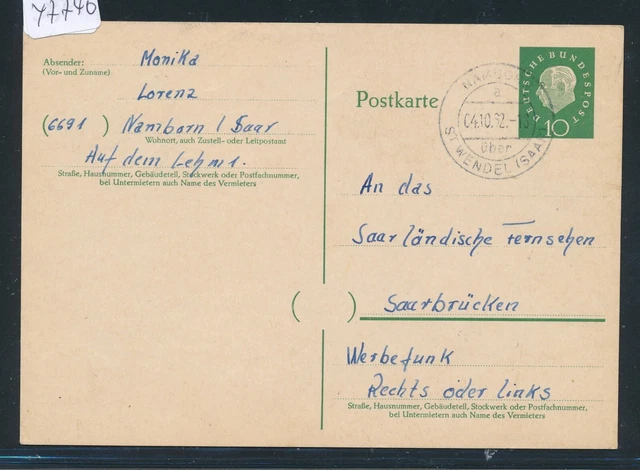 47740
Absender:
(Vor- und Zuname)
Monika
Lorenz
(6691) Namborn / Saar
Wohnort, auch Zustell- oder Leitpostamt
Auf dem Lehm 1.
Straße, Hausnummer, Gebäudeteil, Stockwerk oder Postfachnummer,
bei Untermietern auch Name des Vermieters
Postkarte
a
04.10.62.-
über
ST WENDEL (SAAR)
DEUTSCHE BUNDESPOST
10
An das
Saarländische Fernsehen
Saarbrücken
( )
Werbefunk
Rechts oder links
Straße, Hausnummer, Gebäudeteil, Stockwerk oder Postfachnummer,
bei Untermietern auch Name des Vermieters